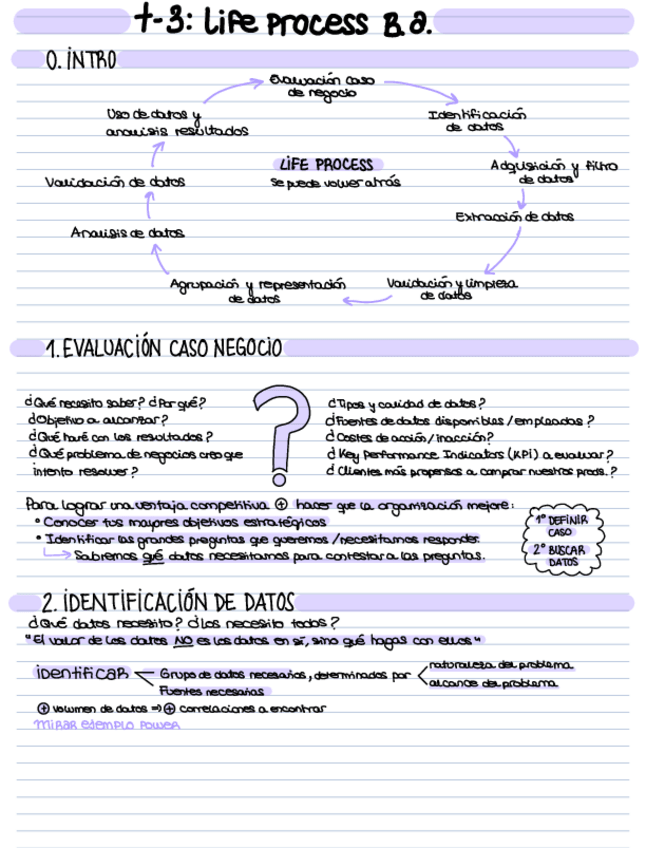 T-3: Life Process B.a.
0. INTRO
Evaluación caso
de negocio
Identificación
de datos
Adquisición y filtro
de datos
Extracción de datos
Validación y limpieza
de datos
Agrupación y representación
de datos
Analisis de datos
Validación de datos
Uso de datos y
analisis resultados
LIFE PROCESS
Se puede volver atrás
1. EVALUACIÓN CASO NEGOCIO
¿Qué necesito saber? ¿Por qué?
¿Objetivo a alcanzar?
¿Qué haré con los resultados?
¿Qué problema de negocios creo que
intento resolver?
?
¿Tipos y calidad de datos?
¿Fuentes de datos disponibles/empleadas?
¿Costes de acción/inacción?
¿Key Performance Indicators (KPI) a evaluar?
¿Clientes más propensos a comprar nuestros prods.?
Para lograr una ventaja competitiva ⊕ hacer que la organización mejore:
• Conocer tus mayores objetivos estratégicos
• Identificar las grandes preguntas que queremos/necesitamos responder.
Sabremos qué datos necesitamos para contestar a las preguntas.
1º DEFINIR
CASO
2º BUSCAR
DATOS
2. IDENTIFICACIÓN DE DATOS
¿Qué datos necesito? ¿Los necesito todos?
"El valor de los datos NO es los datos en sí, sino qué hagas con ellos"
identificar
Grupo de datos necesarios, determinados por
naturaleza del problema
alcance del problema
Fuentes necesarias
⊕ volumen de datos ⇒ ⊕ correlaciones a encontrar
MIRAR EJEMPLO POWER